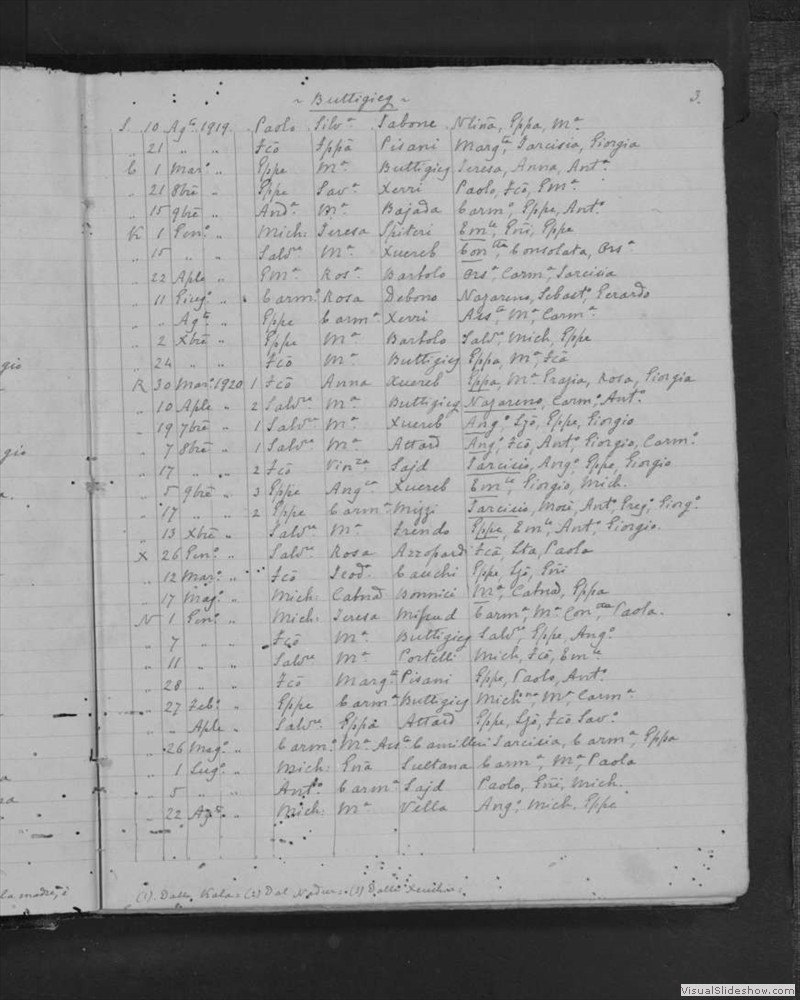 ~ Buttigieg ~ 3.
S. 10 Agto. 1919. Paolo Silva. Sabone Nlina, Eppa, Ma.
„ 21 „ „ Fco Eppa Pisani Marga. Tarcisia, Giorgia
C 1 Mar. „ Eppe Ma. Buttigieg Teresa, Anna, Anto.
„ 21 8bre „ Eppe Sava. Xerri Paolo, Fco, Emo.
„ 15 9bre „ Anda. Ma. Bajada Carmo. Eppe, Anto.
K 1 Geno. „ Mich: Teresa Spiteri Emle, Gni, Eppe
„ 15 „ „ Salvre Ma. Xuereb Contta, Consolata, Orsa.
„ 22 Aple „ Ema. Rosa. Bartolo Orsa, Carma, Tarcisia
„ 11 Giugo. „ Carmo. Rosa Debono Nazareno, Sebasto. Gerardo
„ „ Agto. „ Eppe Carma. Xerri Assta. Ma. Carma.
„ 2 Xbre „ Eppe Ma. Bartolo Salvre, Mich, Eppe
„ 24 „ „ Fco Ma. Buttigieg Eppa, Ma. Fco
R 30 Mar. 1920 1 Fco Anna Xuereb Eppa, Ma. Grazia, Rosa, Giorgia
„ 10 Aple „ 2 Salvre Ma. Buttigieg Nazareno, Carmo. Anto.
„ 19 7bre „ 1 Salvre Ma. Xuereb Ango. Ljo, Eppe, Giorgio
„ 7 8bre „ 1 Salvre Ma. Attard Ango. Fco, Anto. Giorgio, Carmo.
„ 17 „ „ 2 Fco Vinza Sajd Tarcisio, Ango. Eppe, Giorgio
„ 5 9bre „ 3 Eppe Angca Xuereb Emle, Giorgio, Mich.
„ 17 „ „ 2 Eppe Carma. Mizzi Tarcisio, Mosè, Anto. Grego. Giorgo.
„ 13 Xbre „ Salvre Ma. Eppe, Emle, Anto. Giorgio.
X 26 Geno. „ Salvre Rosa Azzopardi Fca, Paola
„ 12 Mar. „ Fco Teoda. Cauchi Eppe, Ljo, Gni
„ 17 Mago. „ Mich: Catnd Bonnici Ma, Catnd, Eppa
N 1 Geno. „ Mich: Teresa Mifsud Carma. Ma. Contta Paola.
„ 7 „ „ Fco Ma. Buttigieg Salvre, Eppe, Ango.
„ 11 „ „ Salvre Ma. Portelli Mich, Fco, Emle
„ 28 „ „ Fco Margta Pisani Eppe, Paolo, Anto.
„ 27 Feb. „ Eppe Carma. Buttigieg Michna, Ma, Carma.
„ „ Aple „ Salvre Eppa Attard Eppe, Ljo, Fco Savo.
„ 26 Mago. „ Carmo. Ma. Assta Camilleri Tarcisia, Carma, Eppa
„ 1 Lugo. „ Mich: Gna Sultana Carma, Ma. Paola
„ 5 „ „ Anto. Carma. Sajd Paolo, Gni, Mich.
„ 22 Agto. „ Mich: Ma. Vella Ango. Mich. Eppe
(1). Dalla Kala: (2) Dal Nadur: (3) Dalla Xeuchia:
la madre, è
VisualSlideshow.com